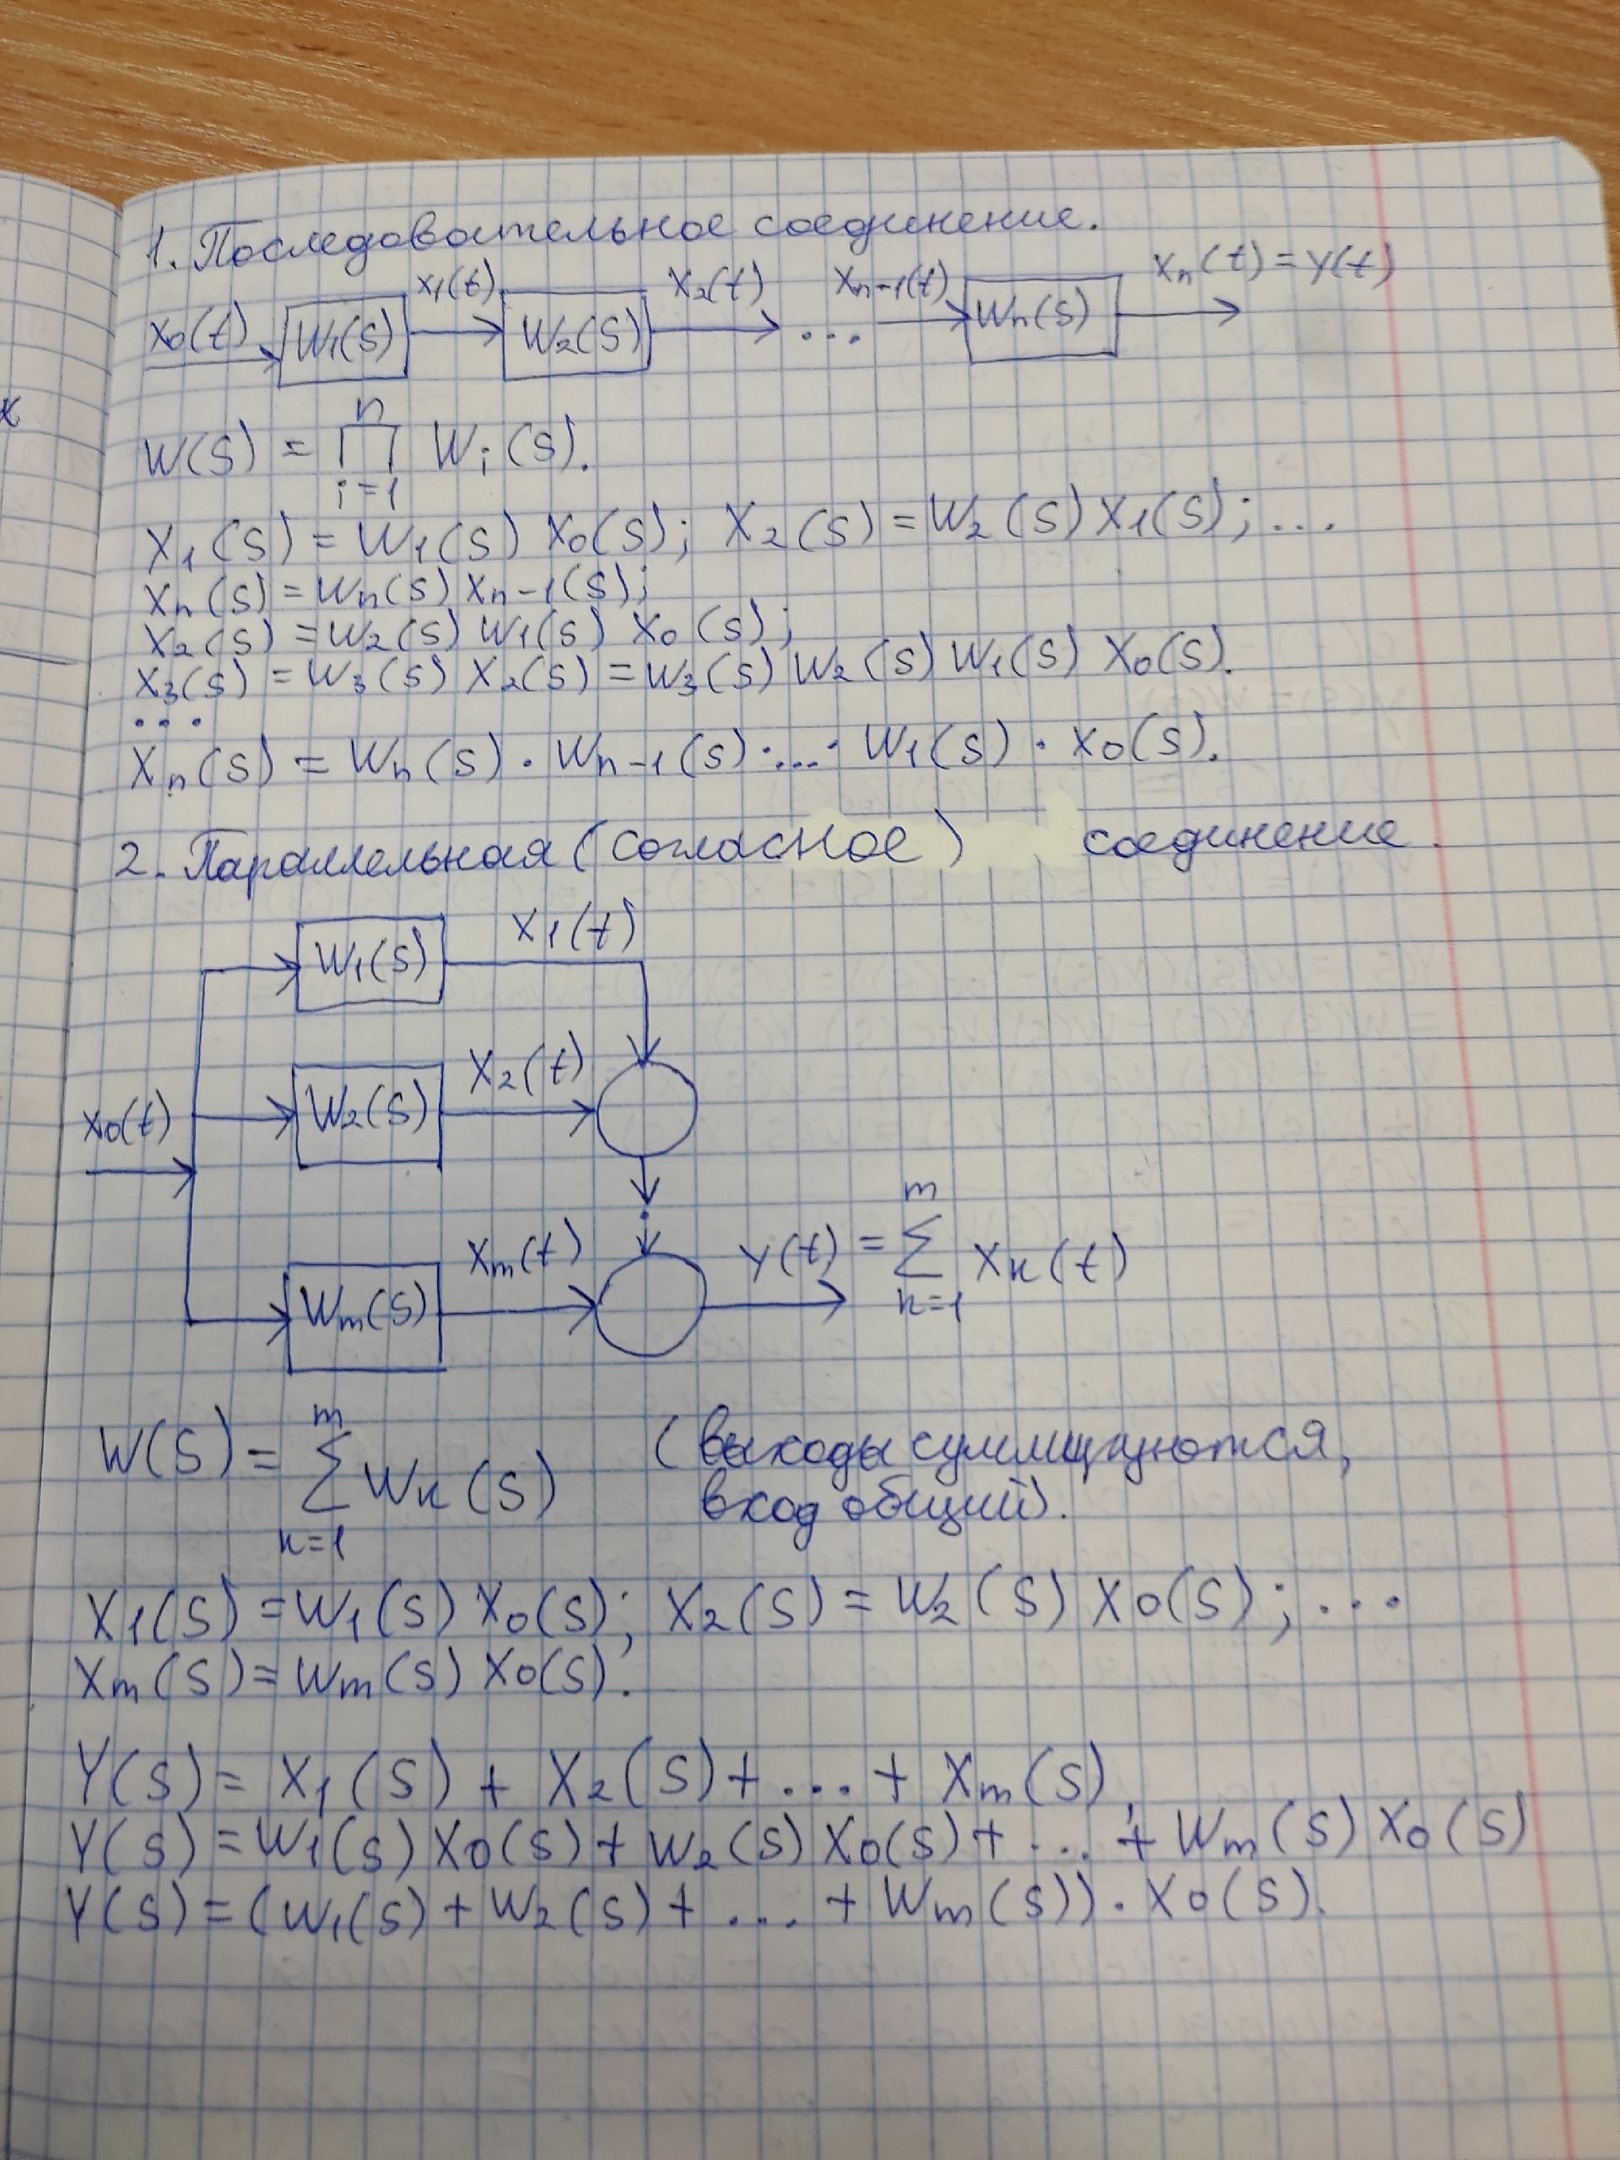 1. Последовательное соединение.
x0(t) W1(s) x1(t) W2(s) x2(t) ... xn-1(t) Wn(s) xn(t) = y(t)
W(s) = ∏ i=1 n Wi(s).
X1(s) = W1(s) X0(s); X2(s) = W2(s) X1(s); ...
Xn(s) = Wn(s) Xn-1(s);
X2(s) = W2(s) W1(s) X0(s);
X3(s) = W3(s) X2(s) = W3(s) W2(s) W1(s) X0(s).
...
Xn(s) = Wn(s) · Wn-1(s) · ... · W1(s) · X0(s).
2. Параллельная (согласное) соединение.
W1(s) X1(t)
x0(t) W2(s) X2(t)
Wm(s) Xm(t) y(t) = ∑ k=1 m Xk(t)
W(s) = ∑ k=1 m Wk(s) (выходы суммируются,
вход общий).
X1(s) = W1(s) X0(s); X2(s) = W2(s) X0(s); ...
Xm(s) = Wm(s) X0(s).
Y(s) = X1(s) + X2(s) + ... + Xm(s),
Y(s) = W1(s) X0(s) + W2(s) X0(s) + ... + Wm(s) X0(s)
Y(s) = (W1(s) + W2(s) + ... + Wm(s)) · X0(s).